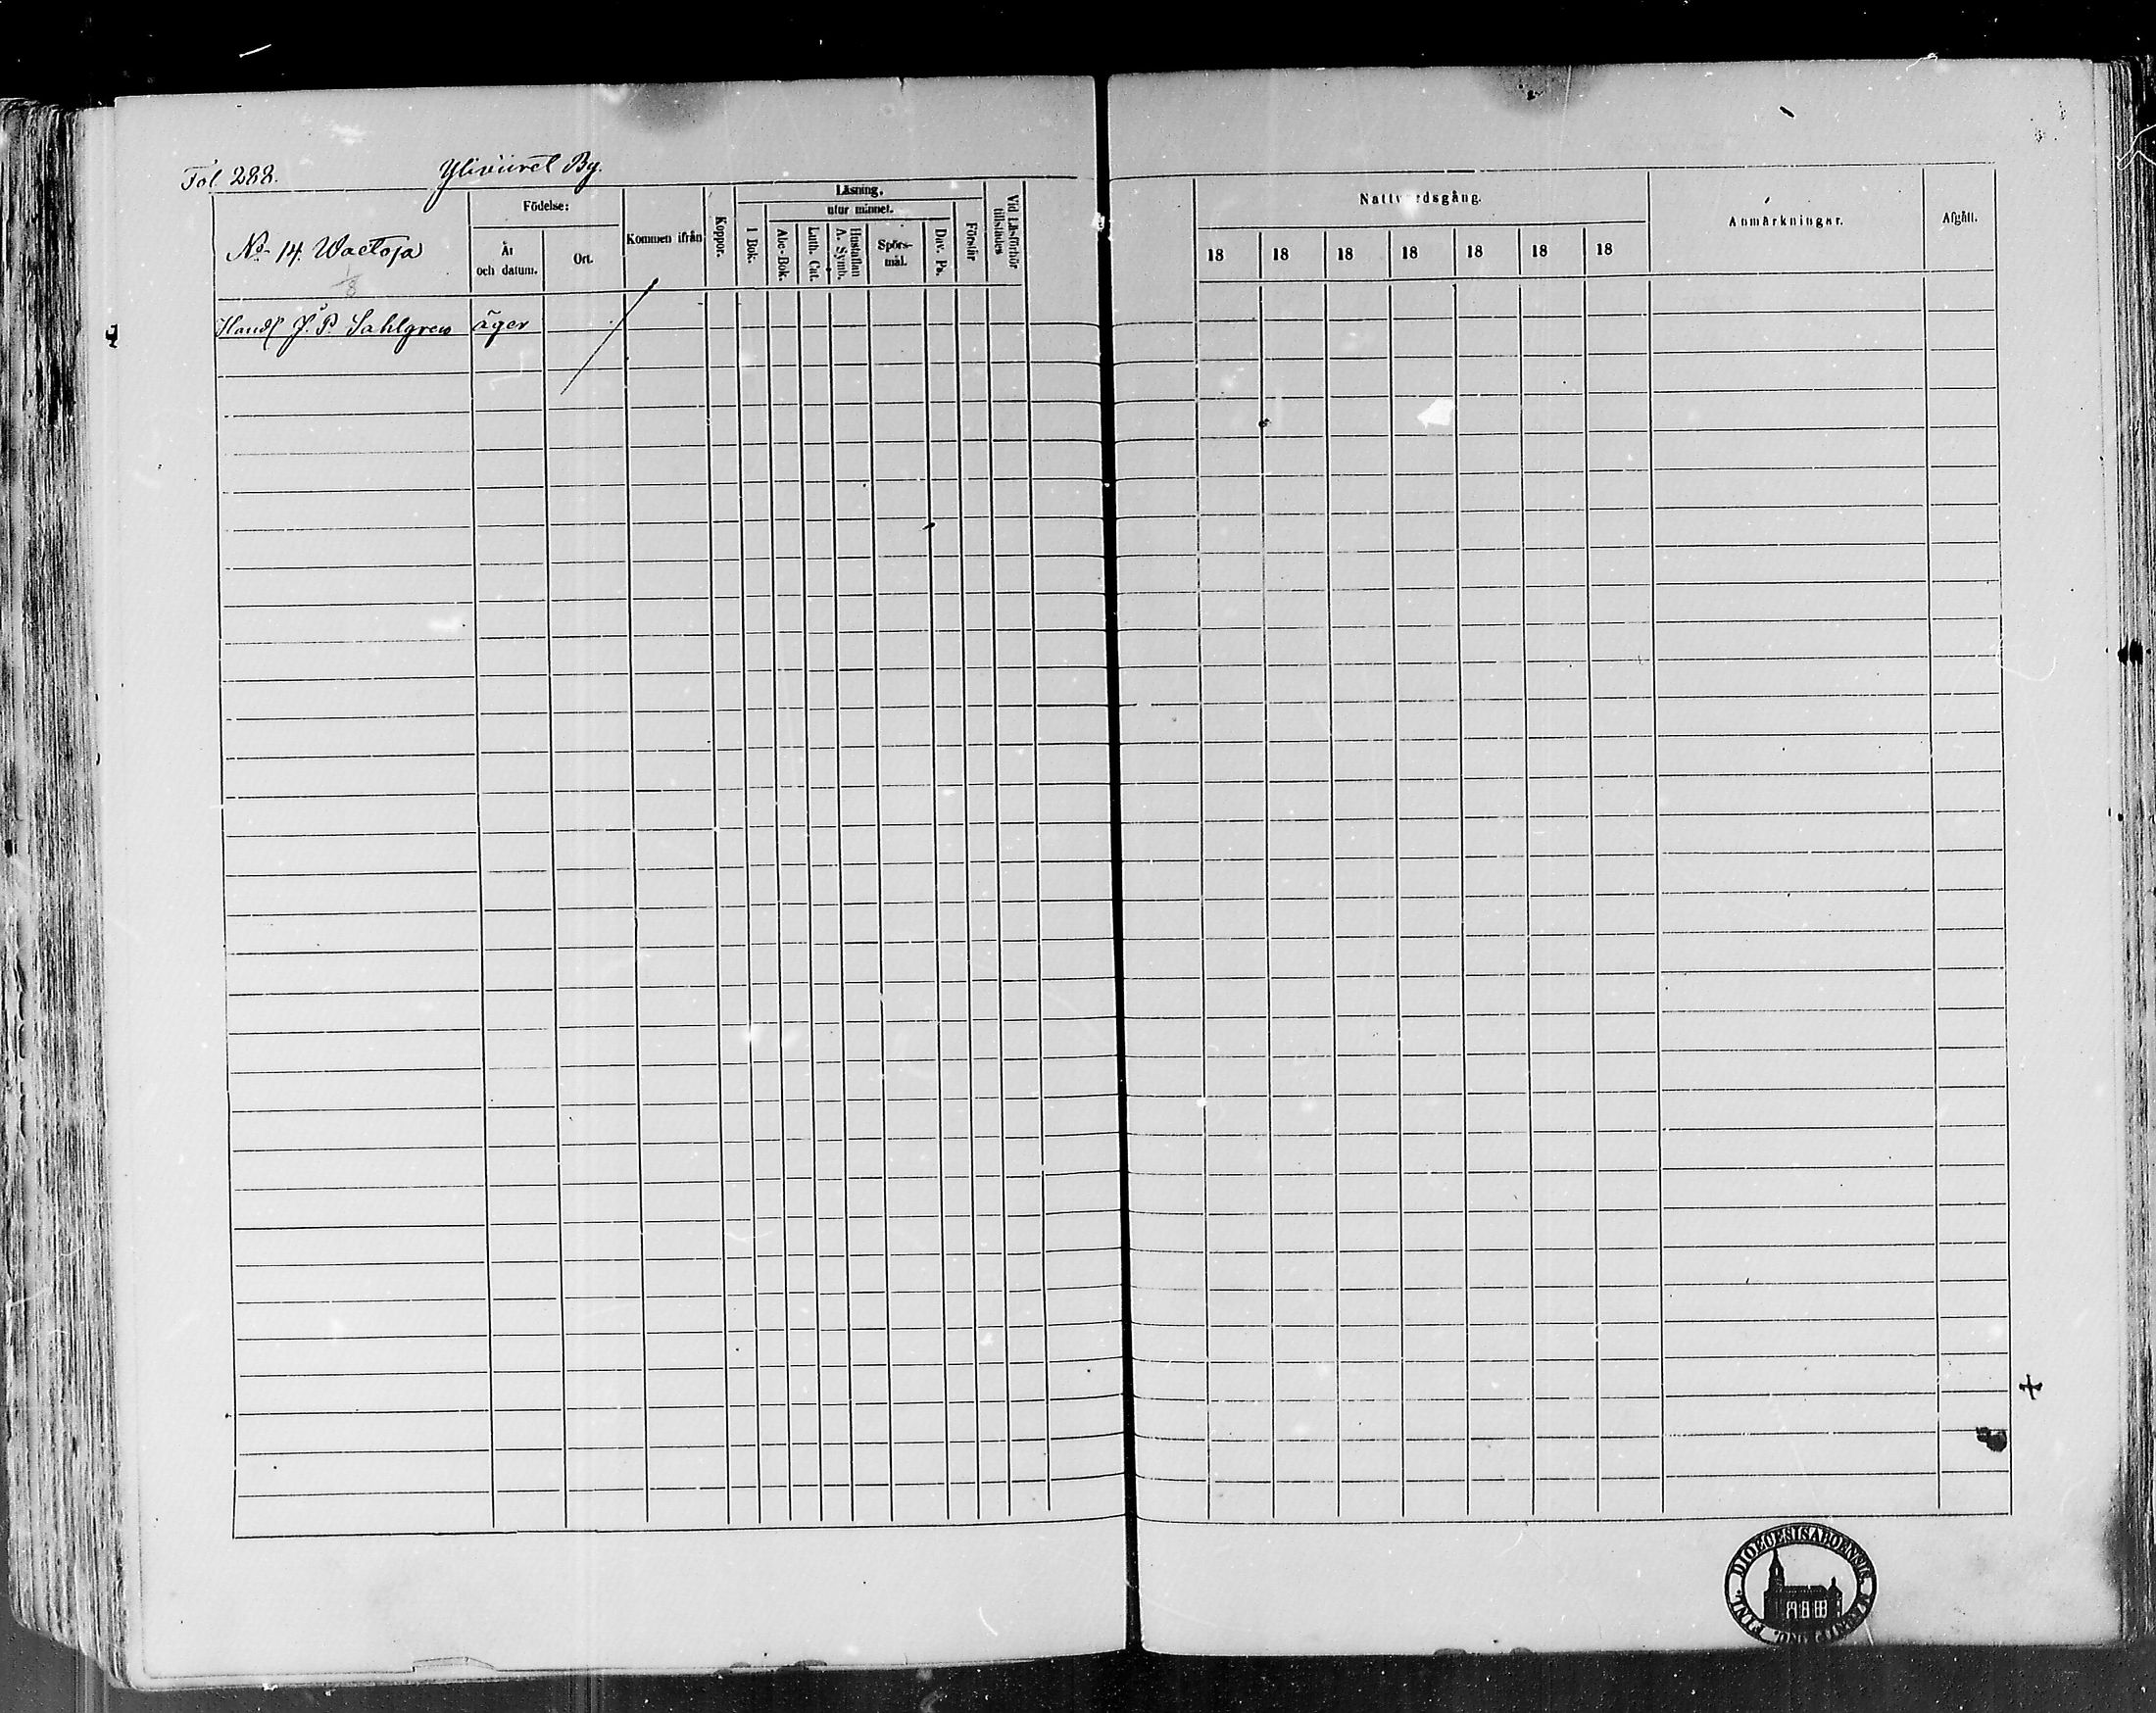 Fol 288. Yliviiret By.
Läsning.
Födelse: utur minnet.
No 14. Waetoja År och datum. Ort. Kommen ifrån Koppor. I Bok. Abc-Bok. Luth. Cat. Hustaflan A. Symb. Spörs-mål. Dav. Ps. Förstår Vid Läsförhör tillstädes
1/8
Handl J. P. Sahlgren äger
Nattvardsgång. Anmärkningar. Afgått.
18 18 18 18 18 18 18
FINL. DIOECESIS ABOENSIS